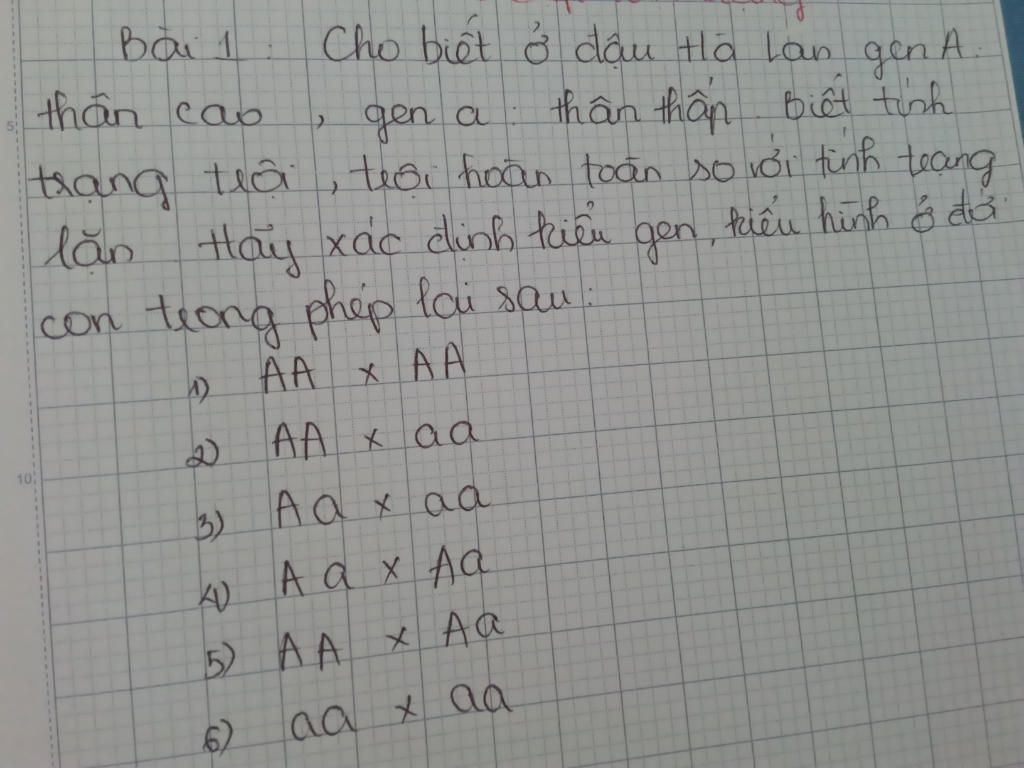 Bài 1: Cho biết ở đậu Hà Lan gen A:
thân cao, gen a: thân thấp. biết tính
trạng trội, trội hoàn toàn so với tính trạng
lặn. Hãy xác định kiểu gen, kiểu hình ở đời
con trong phép lai sau:
1) AA x AA
2) AA x aa
3) Aa x aa
4) Aa x Aa
5) AA x Aa
6) aa x aa
5
10